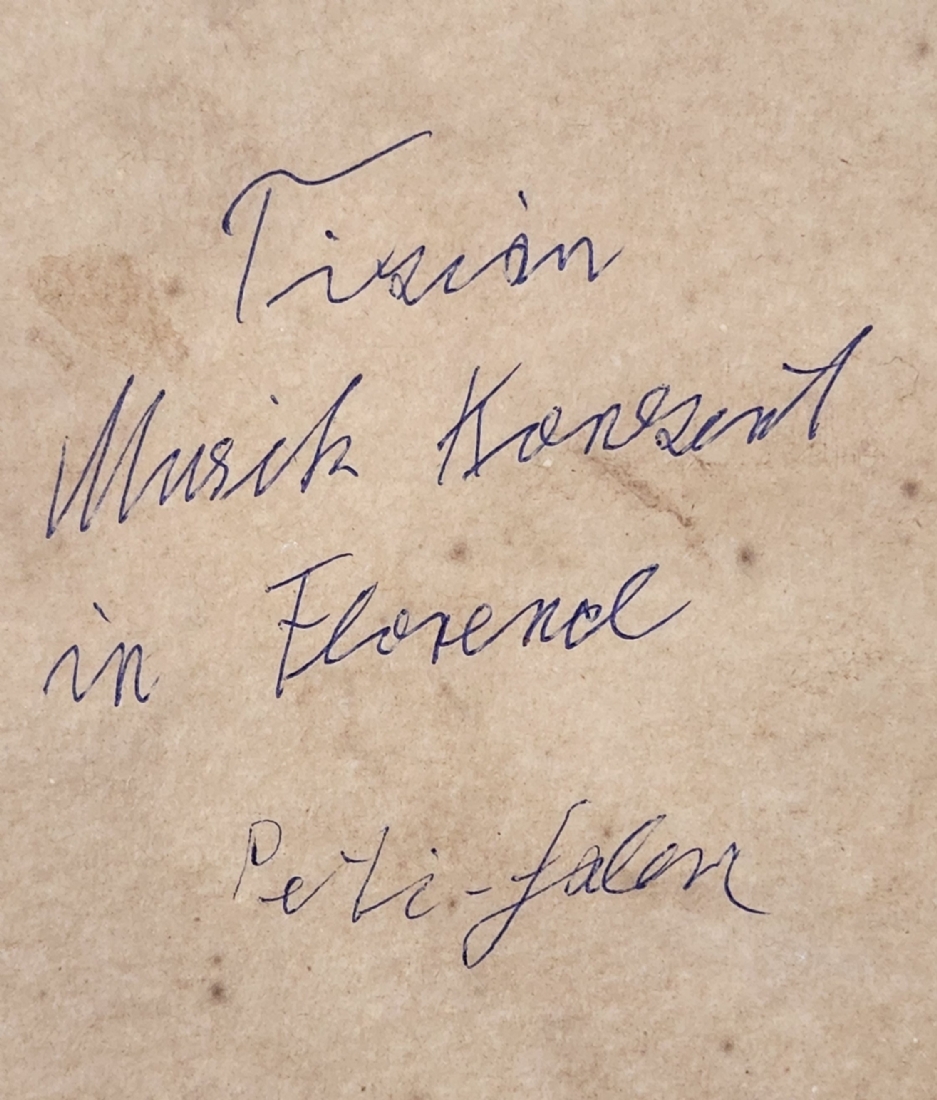 Tizian
Musik Konzert
in Florenz
Peti-Salon